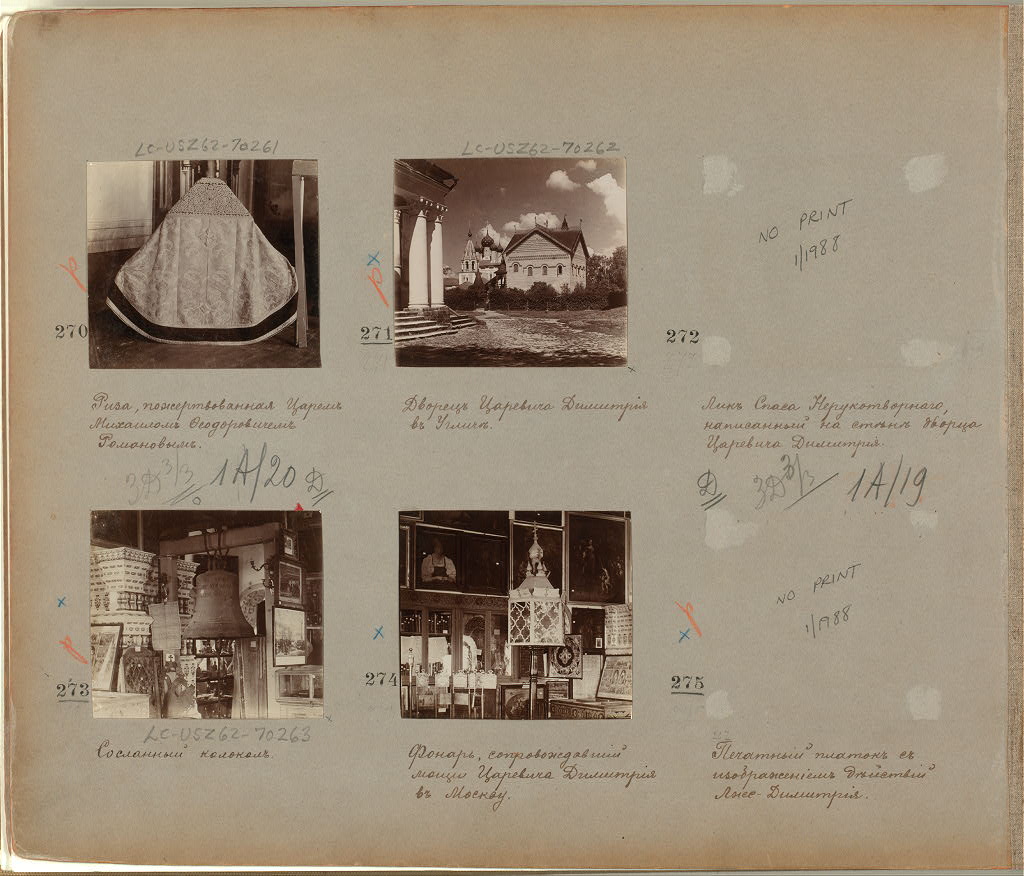 LC-USZ62-70261
LC-USZ62-70262
NO PRINT
1/1988
270
271
272
Риза, пожертвованная Царемъ
Михаиломъ Ѳеодоровичемъ
Романовымъ.
Дворецъ Царевича Димитрія
въ Угличѣ.
Ликъ Спаса Нерукотворнаго,
написанный на стѣнѣ дворца
Царевича Димитрія.
1A/20
1A/19
NO PRINT
1/1988
273
274
275
LC-USZ62-70263
Сосланный колоколъ.
Фонарь, сопровождавшій
мощи Царевича Димитрія
въ Москву.
Печатный платокъ съ
изображеніемъ дѣйствій
Лже-Димитрія.